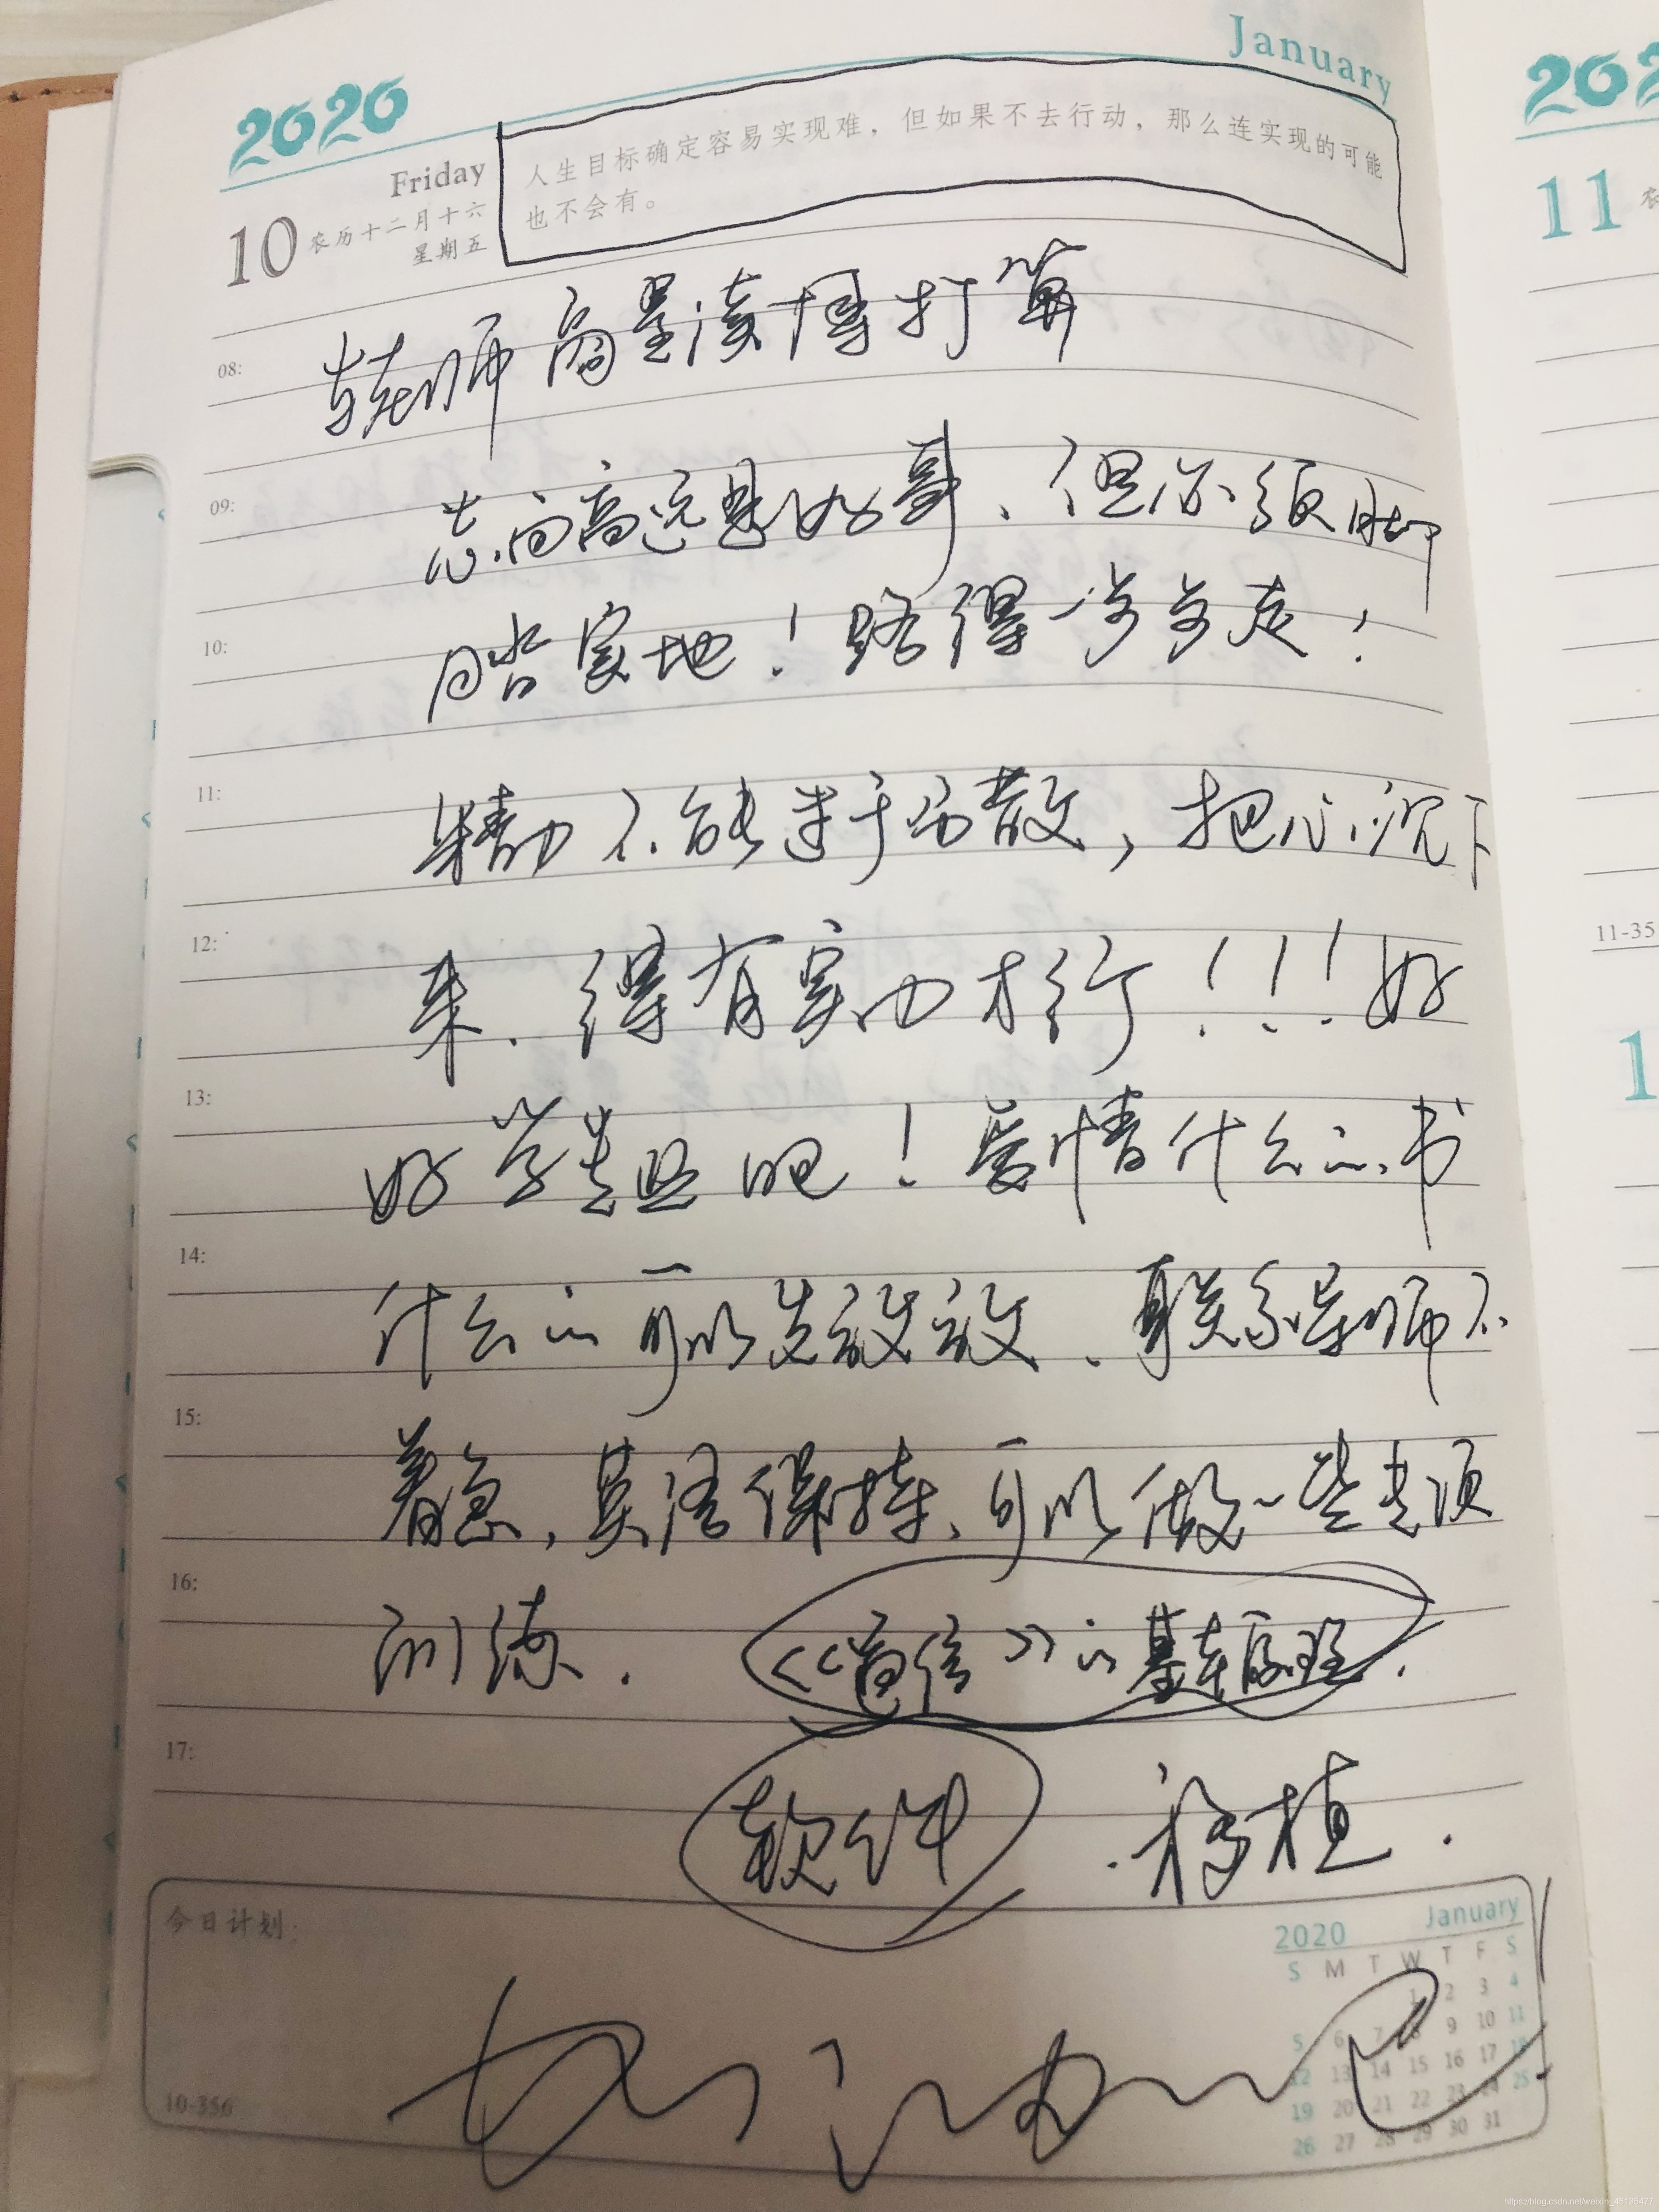 2020
January
202
Friday
人生目标确定容易实现难，但如果不去行动，那么连实现的可能
也不会有。
10
农历十二月十六
星期五
11
农
老师商量读博打算
08:
志向高远是好事、但必须脚
09:
踏实地！路得一步步走！
10:
精力不能过于分散，把心沉下
11:
来、得有实力才行！！！好
12:
11-35
好学基础吧！爱情什么的、书
13:
1
什么的可以先放放、联系导师不
14:
着急，英语保持、可以做一些专项
15:
训练．《通信》的基本原理．
16:
软件 ．移植．
17:
今日计划:
2020 January
S M T W T F S
1 2 3 4
5 6 7 8 9 10 11
12 13 14 15 16 17 18
19 20 21 22 23 24 25
26 27 28 29 30 31
加油
10-356
https://blog.csdn.net/weixin_45135477